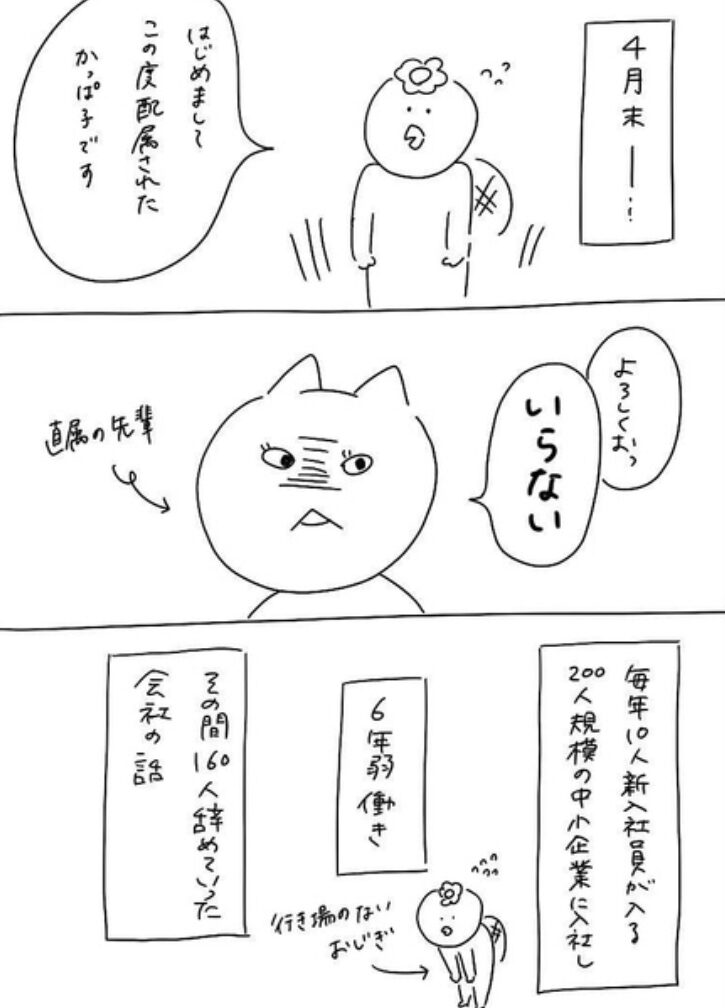 4月末―…
はじめまして
この度配属された
かっぱ子です
よろしくおっ
いらない
直属の先輩
毎年10人新入社員が入る
200人規模の中小企業に入社し
6年弱働き
その間160人辞めていった
会社の話
行き場のない
おじぎ